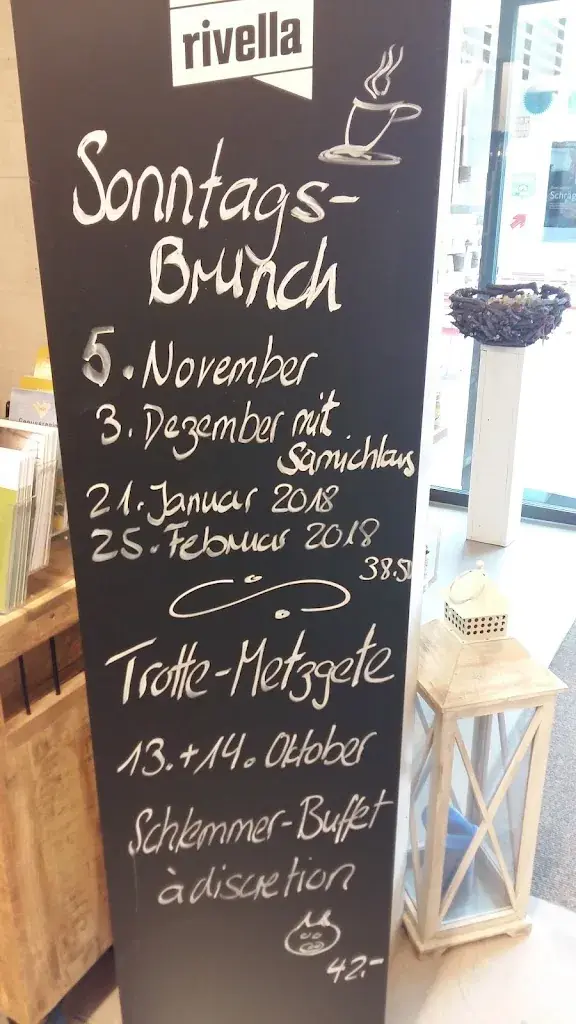 rivella
Sonntags-
Brunch
5. November
3. Dezember mit
Samichlaus
21. Januar 2018
25. Februar 2018
38.50
Trotte-Metzgete
13. + 14. Oktober
Schlemmer-Buffet
à discretion
42.-
Schräg